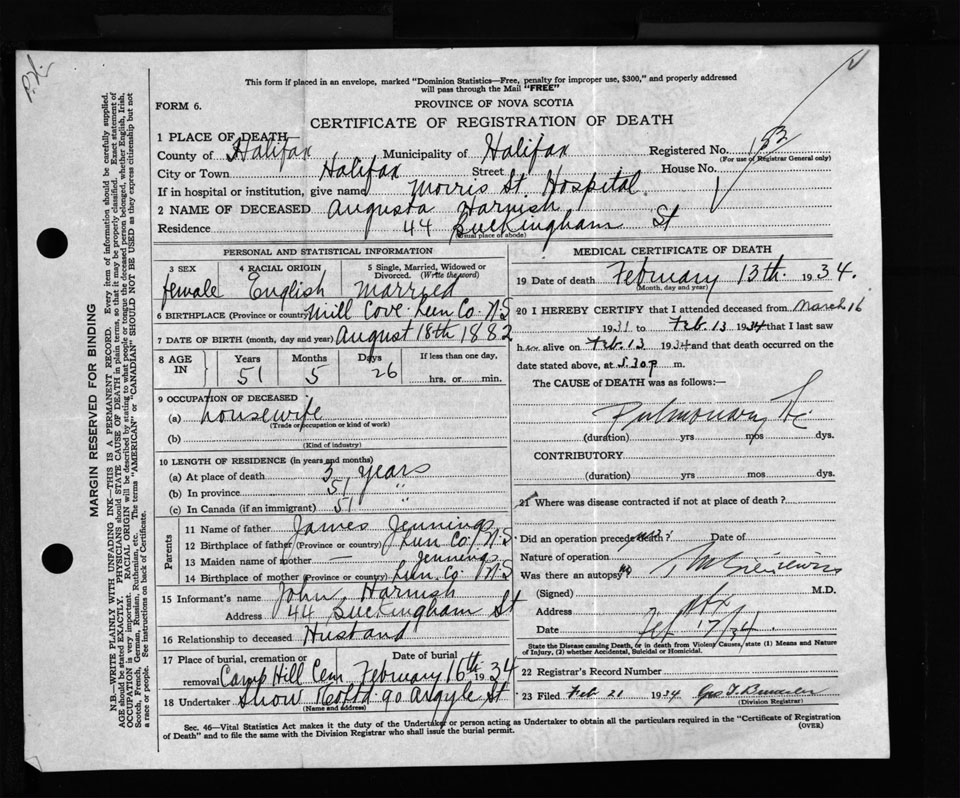 This form if placed in an envelope, marked "Dominion Statistics—Free, penalty for improper use, $300," and properly addressed
will pass through the Mail "FREE"
FORM 6.
PROVINCE OF NOVA SCOTIA
CERTIFICATE OF REGISTRATION OF DEATH
1 PLACE OF DEATH—
County of Halifax Municipality of Halifax Registered No.
(For use of Registrar General only)
City or Town Halifax Street House No.
If in hospital or institution, give name Morris St. Hospital
2 NAME OF DECEASED Augusta Harnish
Residence 44 Buckingham St
(Usual place of abode)
PERSONAL AND STATISTICAL INFORMATION
3 SEX 4 RACIAL ORIGIN 5 Single, Married, Widowed or Divorced. (Write the word)
female English married
6 BIRTHPLACE (Province or country) Mill Cove Lun Co. N.S
7 DATE OF BIRTH (month, day and year) August 18th 1882
8 AGE IN Years Months Days If less than one day,
51 5 26 hrs. or min.
9 OCCUPATION OF DECEASED
(a) housewife
(Trade occupation or kind of work)
(b)
(Kind of industry)
10 LENGTH OF RESIDENCE (in years and months)
(a) At place of death 3 years
(b) In province 51 "
(c) In Canada (if an immigrant) 51
Parents
11 Name of father James Jennings
12 Birthplace of father (Province or country) Lun Co. N.S
13 Maiden name of mother — Jennings
14 Birthplace of mother (Province or country) Lun Co. N.S
15 Informant's name John Harnish
Address 44 Buckingham St
16 Relationship to deceased Husband
17 Place of burial, cremation or removal Date of burial
Camp Hill Cem. February 16th 1934
18 Undertaker Snow & Co Ltd 90 Argyle St
(Name and address)
MEDICAL CERTIFICATE OF DEATH
19 Date of Death February 13th. 1934.
(Month, day and year)
20 I HEREBY CERTIFY that I attended deceased from March 16
1931 to Feb. 13 1934 that I last saw
h er alive on Feb. 13 1934 and that death occurred on the
date stated above, at 5.30 p m.
The CAUSE of DEATH was as follows:—
Pulmonary
(duration) yrs mos dys.
CONTRIBUTORY
(duration) yrs. mos. dys.
21 Where was disease contracted if not at place of death?
Did an operation precede death? Date of
Nature of operation
Was there an autopsy no
(Signed) M.D.
Address Hfx
Date Feb 17/34
State the Disease Causing Death, or in Death from Violent Causes, state (1) Means and Nature
of Injury, (2) whether Accidental, Suicidal or Homicidal.
22 Registrar's Record Number
23 Filed Feb 21 1934
(Division Registrar)
Sec. 46—Vital Statistics Act makes it the duty of the Undertaker or person acting as Undertaker to obtain all the particulars required in the "Certificate of Registration
of Death" and to file the same with the Division Registrar who shall issue the burial permit.
(OVER)
MARGIN RESERVED FOR BINDING
N.B.—WRITE PLAINLY WITH UNFADING INK—THIS IS A PERMANENT RECORD. Every item of information should be carefully supplied.
AGE should be stated EXACTLY. PHYSICIANS should STATE CAUSE OF DEATH in plain terms, so that it may be properly classified. Exact statement of
OCCUPATION is very important. RACIAL ORIGIN will be described by stating to what people or tongue the deceased person belonged, whether English, Irish,
Scotch, French, German, Russian, Ruthenian, etc. The terms "AMERICAN" or "CANADIAN" SHOULD NOT BE USED as they express citizenship but not
a race or people. See instructions on back of Certificate.